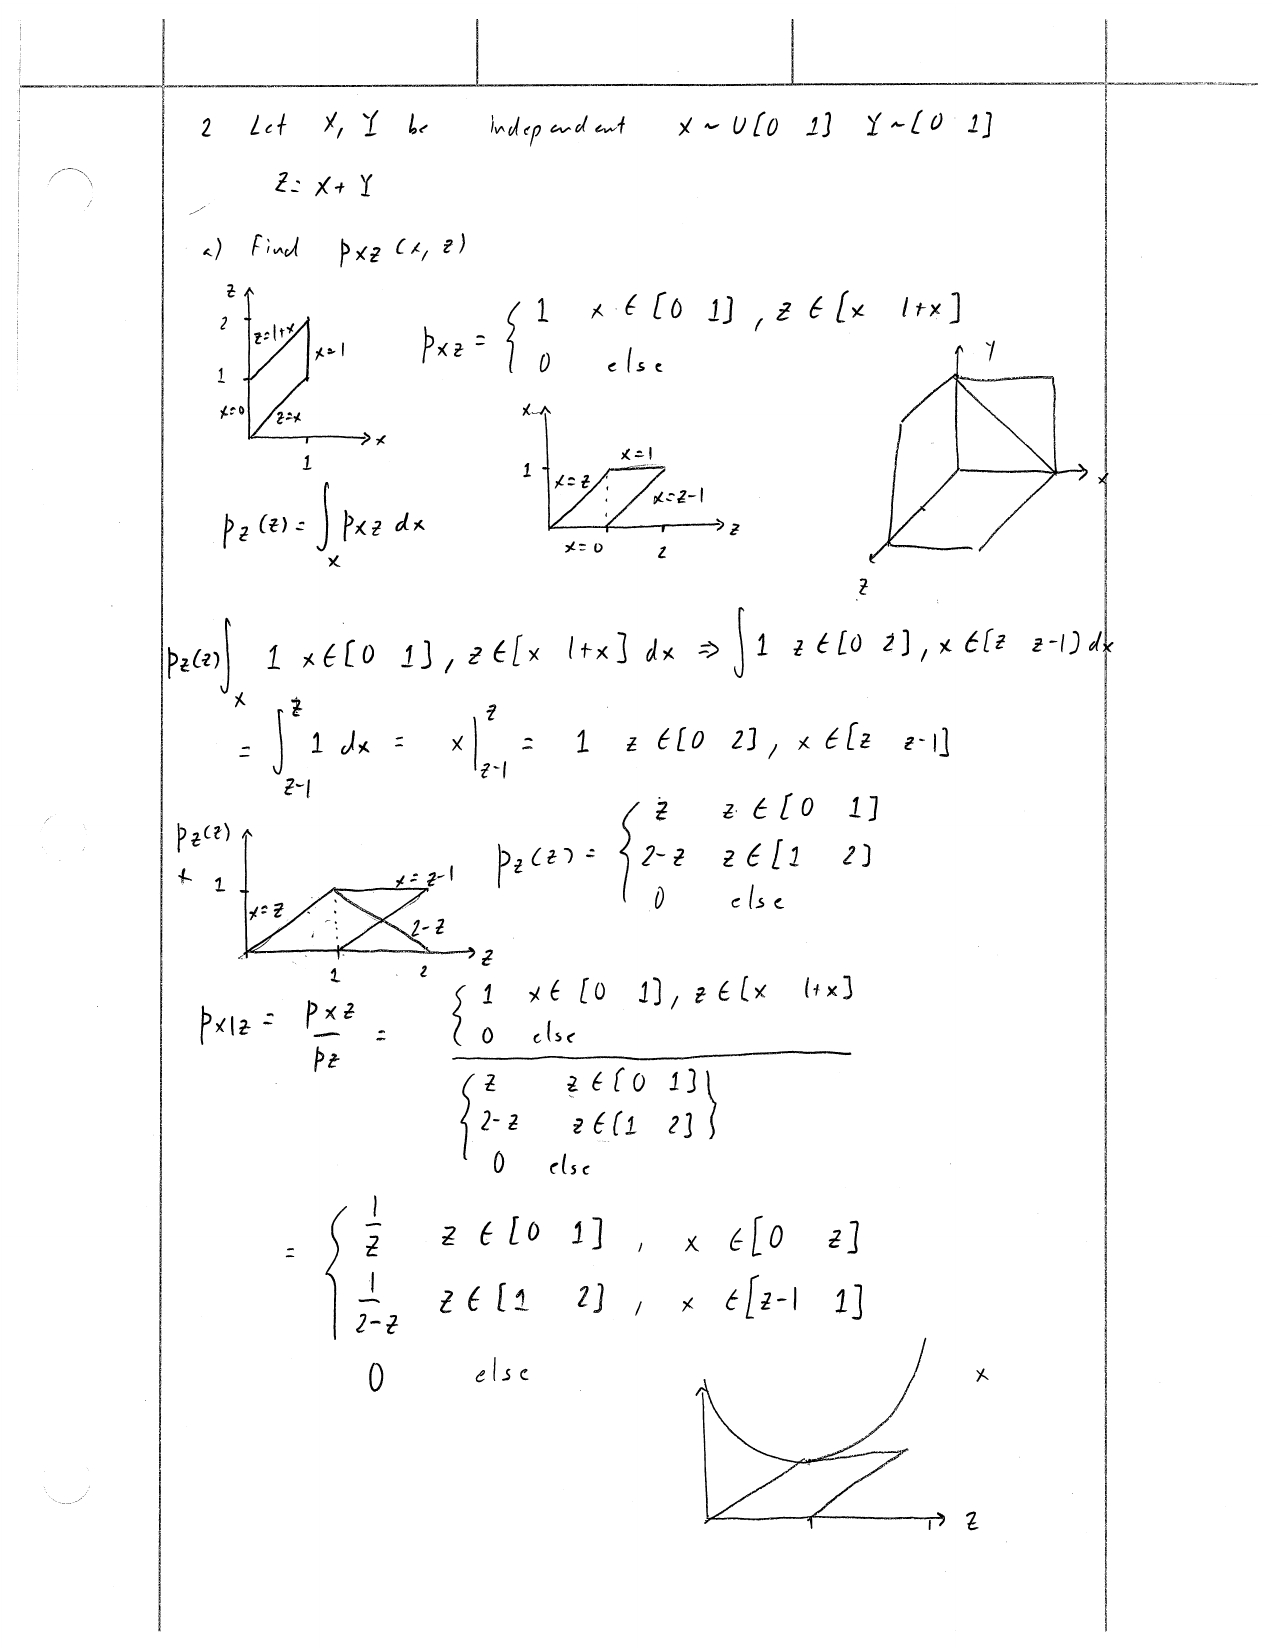 2 Let X, Y be independent X ~ U[0 1] Y ~ [0 1]
Z = X + Y
a) Find pxz (x, z)
z
2
z=1+x
x=1
1
x=0
z=x
x
1
pxz = { 1 x ∈ [0 1], z ∈ [x 1+x]
0 else
Y
x
z
x
1
x=1
x=z
x=z-1
z
x=0
2
pz(z) = ∫x pxz dx
pz(z) ∫x 1 x∈[0 1], z∈[x 1+x] dx ⇒ ∫ 1 z∈[0 2], x∈[z z-1] dx
= ∫_{z-1}^{z} 1 dx = x|_{z-1}^{z} = 1 z∈[0 2], x∈[z z-1]
pz(z)
x 1
x=z
x=z-1
2-z
z
1
2
pz(z) = { z z∈[0 1]
2-z z∈[1 2]
0 else
px|z = pxz / pz =
{ 1 x∈[0 1], z∈[x 1+x]
0 else
{ z z∈[0 1] }
2-z z∈[1 2]
0 else
= { 1/z z ∈ [0 1], x ∈ [0 z]
1/2-z z ∈ [1 2], x ∈ [z-1 1]
0 else
x
z